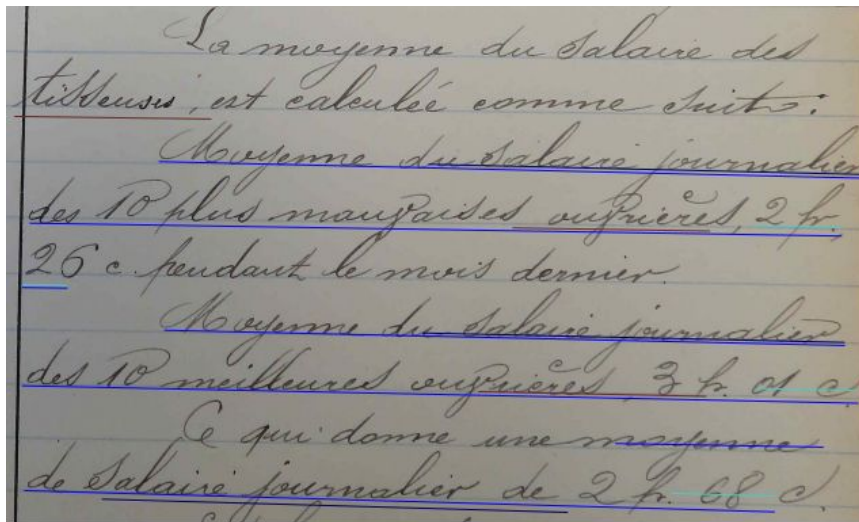 La moyenne du salaire des
tisseuses, est calculée comme suit :
Moyenne du salaire journalier
des 10 plus mauvaises ouvrières, 2 fr.,
26 c. pendant le mois dernier.
Moyenne du salaire journalier
des 10 meilleures ouvrières, 3 fr. 01 c.
Ce qui donne une moyenne
de salaire journalier de 2 fr. 68 c.